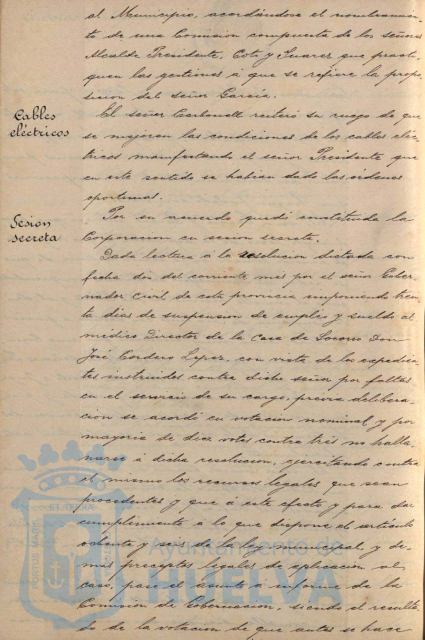 al Municipio, acordándose el nombramien-
to de una Comisión compuesta de los señores
Alcalde Presidente, Coto y Suarez que practi-
quen las gestiones á que se refiere la propo-
sicion del señor García.
Cables
eléctricos
El señor Carbonell reiteró su ruego de que
se mejoren las condiciones de los cables eléc-
tricos manifestando el señor Presidente que
en este sentido se habían dado las órdenes
oportunas.
Sesión
secreta
Por su acuerdo quedó constituida la
Corporacion en sesion secreta.
Dada lectura á la resolucion dictada con
fecha dos del corriente mes por el señor Gober-
nador civil de esta provincia imponiendo trein-
ta dias de suspension de empleo y sueldo al
médico Director de la Casa de Socorro Don
José Cordero Lopez, con vista de los expedien-
tes instruidos contra dicho señor por faltas
en el servicio de su cargo, previa delibera-
ción se acordó en votacion nominal y por
mayoria de diez votos contra tres no halla-
narse á dicha resolucion, ejercitando contra
el mismo los recursos legales que sean
procedentes y que á este efecto y para dar
cumplimiento á lo que dispone el artículo
ochenta y seis de la ley municipal, y de-
más preceptos legales de aplicación al
caso, pase el asunto á informe de la
Comisión de Gobernacion, siendo el resulta-
do de la votacion de que antes se hace
Ayuntamiento de
HUELVA